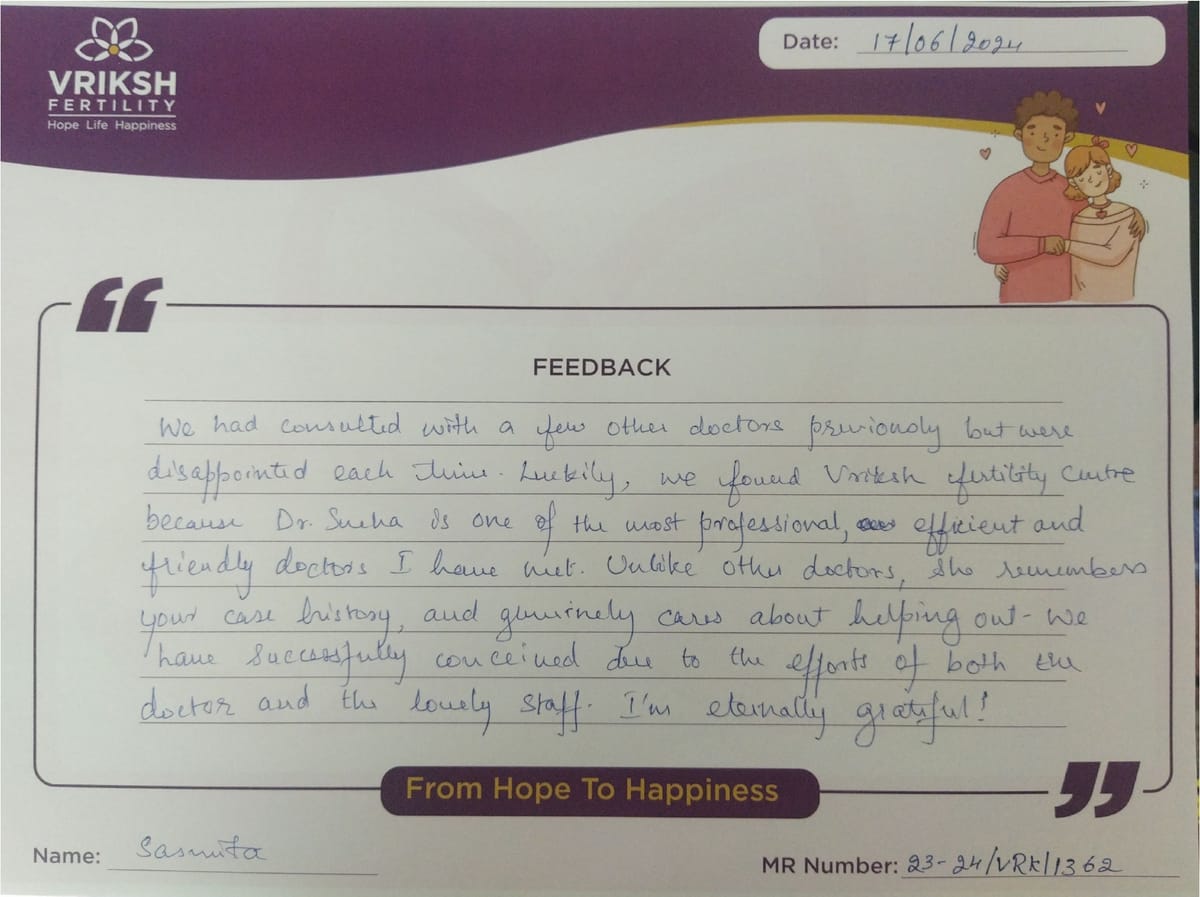 VRIKSH
FERTILITY
Hope Life Happiness
Date: 17/06/2024
FEEDBACK
We had consulted with a few other doctors previously but were
disappointed each time. Luckily, we found Vriksh fertility Centre
because Dr. Sneha is one of the most professional, efficient and
friendly doctors I have met. Unlike other doctors, she remembers
your case history, and genuinely cares about helping out. We
have successfully conceived due to the efforts of both the
doctor and the lovely staff. I'm eternally grateful!
From Hope To Happiness
Name: Sasmita
MR Number: 23-24/VRK/1362